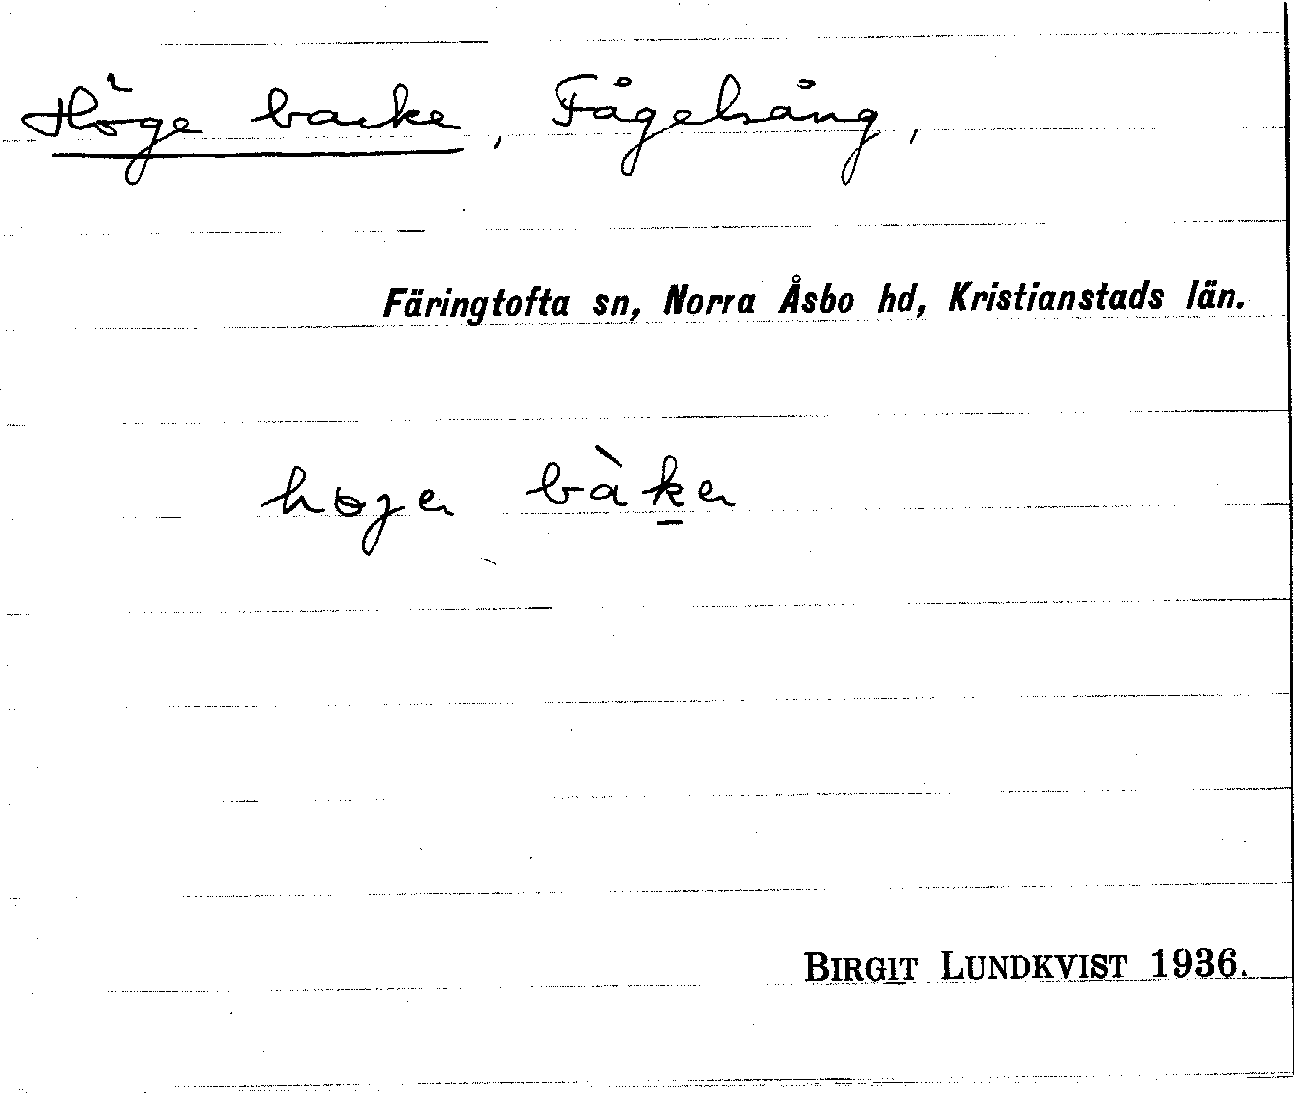 Höge backe, Fågelsång,
Färingtofta sn, Norra Åsbo hd, Kristianstads län.
bàkɐ
BIRGIT LUNDKVIST 1936.